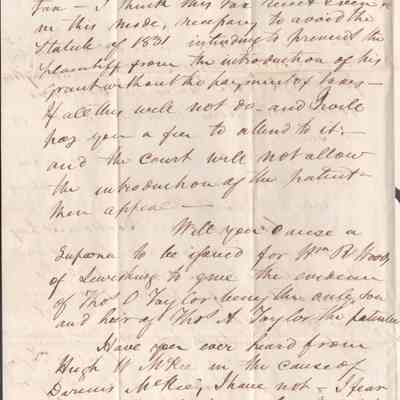 Tax - I think this Tax
in this mode, necessary to avoid the
Statute of 1831 intending to prevent the
plaintiff from the introduction of his
grant without the payment of taxes -
If all this will not do - and I will
pay you a fee to attend to it: -
and the Court will not allow
the introduction of the patent -
then appeal -
Will you cause a
Supoena to be issued for Wm R
of Lewisburg to give the evidence
of Thos O Taylor being the only son
and heir of Thos A Taylor the patentee
Have you ever heard from
Hugh W McKee in the cause of
Darius McKee, I have not - I fear